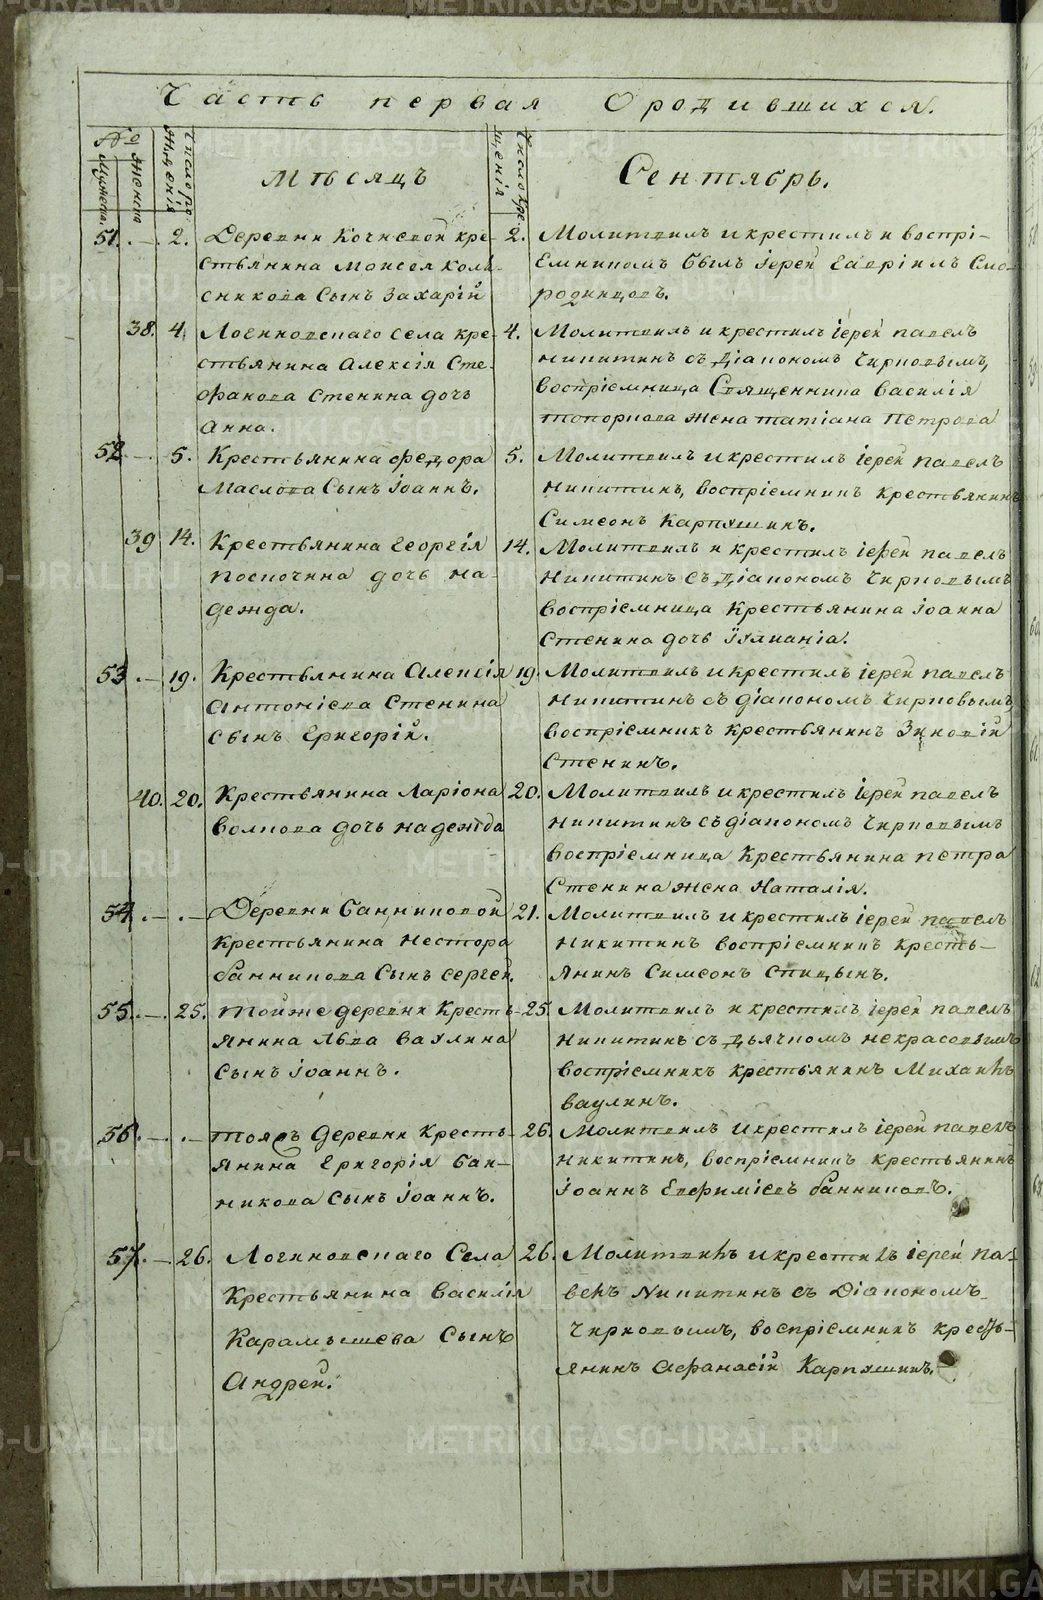 METRIKI.GASO-URAL.RU
Часть первая Ородившихся.
№
Мужеска.
женска
Число рождения
Мѣсяцъ
Число крещенія
Сентябрь.
51. — 2. Деревни Кочневой кре-
стьянина Моисея Коль-
сникова Сынъ Захарій
2. Молитвилъ и крестилъ и воспрі-
Емникомъ былъ Іерей Гавріилъ Смо-
родинцовъ.
38. 4. Логиновскаго села кре-
стьянина Алексія Сте-
фанова Стенина дочь
Анна.
4. Молитвилъ и крестилъ Іерей павелъ
никитинъ съ діакономъ Чирковымъ,
воспріемница Священника василія
топоркова жена татіана Петрова
52. — 5. Крестьянина федора
Маслова Сынъ Іоаннъ.
5. Молитвилъ и крестилъ Іерей павелъ
Никитинъ, воспріемникъ крестьянинъ
Симеонъ Карпушинъ.
39 14. Крестьянина Георгія
поскочина дочь на-
дежда.
14. Молитвилъ и крестилъ іерей павелъ
Никитинъ съ діакономъ Чирковымъ
воспріемница крестьянина Іоанна
Стенина дочь Іуліаніа.
53 — 19. Крестьянина Алексія
Антоніева Стенина
Сынъ Григорій.
19. Молитвилъ и крестилъ іерей павелъ
никитинъ съ діакономъ Чирковымъ
воспріемникъ крестьянинъ Зиновій
Стенинъ.
40. 20. Крестьянина Ларіона
волкова дочь надежда
20. Молитвилъ и крестилъ Іерей павелъ
никитинъ съ діакономъ Чирковымъ
воспріемница Крестьянина петра
Стенина жена Наталія.
54. — . — Деревни Банниковой
крестьянина Нестора
банникова Сынъ сергей.
21. Молитвилъ и крестилъ іерей павелъ
Никитинъ воспріемникъ кресть-
янинъ Симеонъ Спицынъ.
55. — . 25. Той же деревни Кресть-
янина Льва ваулина
Сынъ Іоаннъ.
25. Молитвилъ и крестилъ іерей павелъ
Никитинъ съ дьячкомъ некрасовымъ
воспріемникъ крестьянинъ Михаилъ
ваулинъ.
56. — . — тояжъ деревни кресть-
янина Григорія бан-
никова Сынъ Іоаннъ.
26. Молитвилъ и крестилъ іерей павелъ
Никитинъ, воспріемникъ крестьянинъ
Іоаннъ Евфиміевъ банниковъ.
57. — 26. Логиновскаго Села
Крестьянина Василія
Карамышева Сынъ
Андрей.
26. Молитвилъ и крестилъ іерей па-
велъ Никитинъ съ Діакономъ
Чирковымъ, воспріемникъ кресть-
янинъ Афанасій Карпушинъ.
METRIKI.GASO-URAL.RU